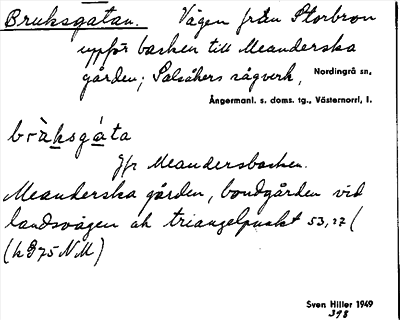 Bruksgatan. Vägen från Storbron
uppför backen till Meanderska
gården; Salsåkers sågverk, Nordingrå sn,
Ångermanl. s. doms. tg., Västernorrl, l.
Jfr Meandersbacken.
Meanderska gården, bondgården vid
landsvägen ok triangelpunkt 53,27 (
(k 875 NM)
Sven Hiller 1949
398